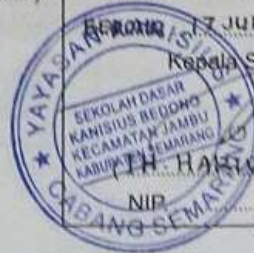 BEDONO, 17 JU
Kepala S
YAYASAN KANISIUS
SEKOLAH DASAR
KANISIUS BEDONO
KECAMATAN JAMBU
KABUPATEN SEMARANG
CABANG SEMARANG
(TH. HAR
NIP.